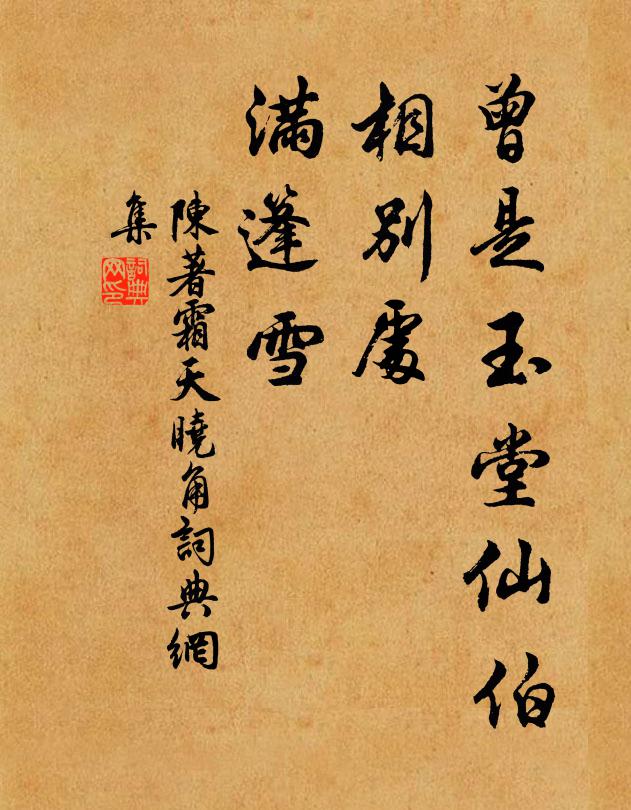 曾是玉堂仙伯
相別處
滿篷雪
陳著霜天曉角詞典網
集
詞典
网印